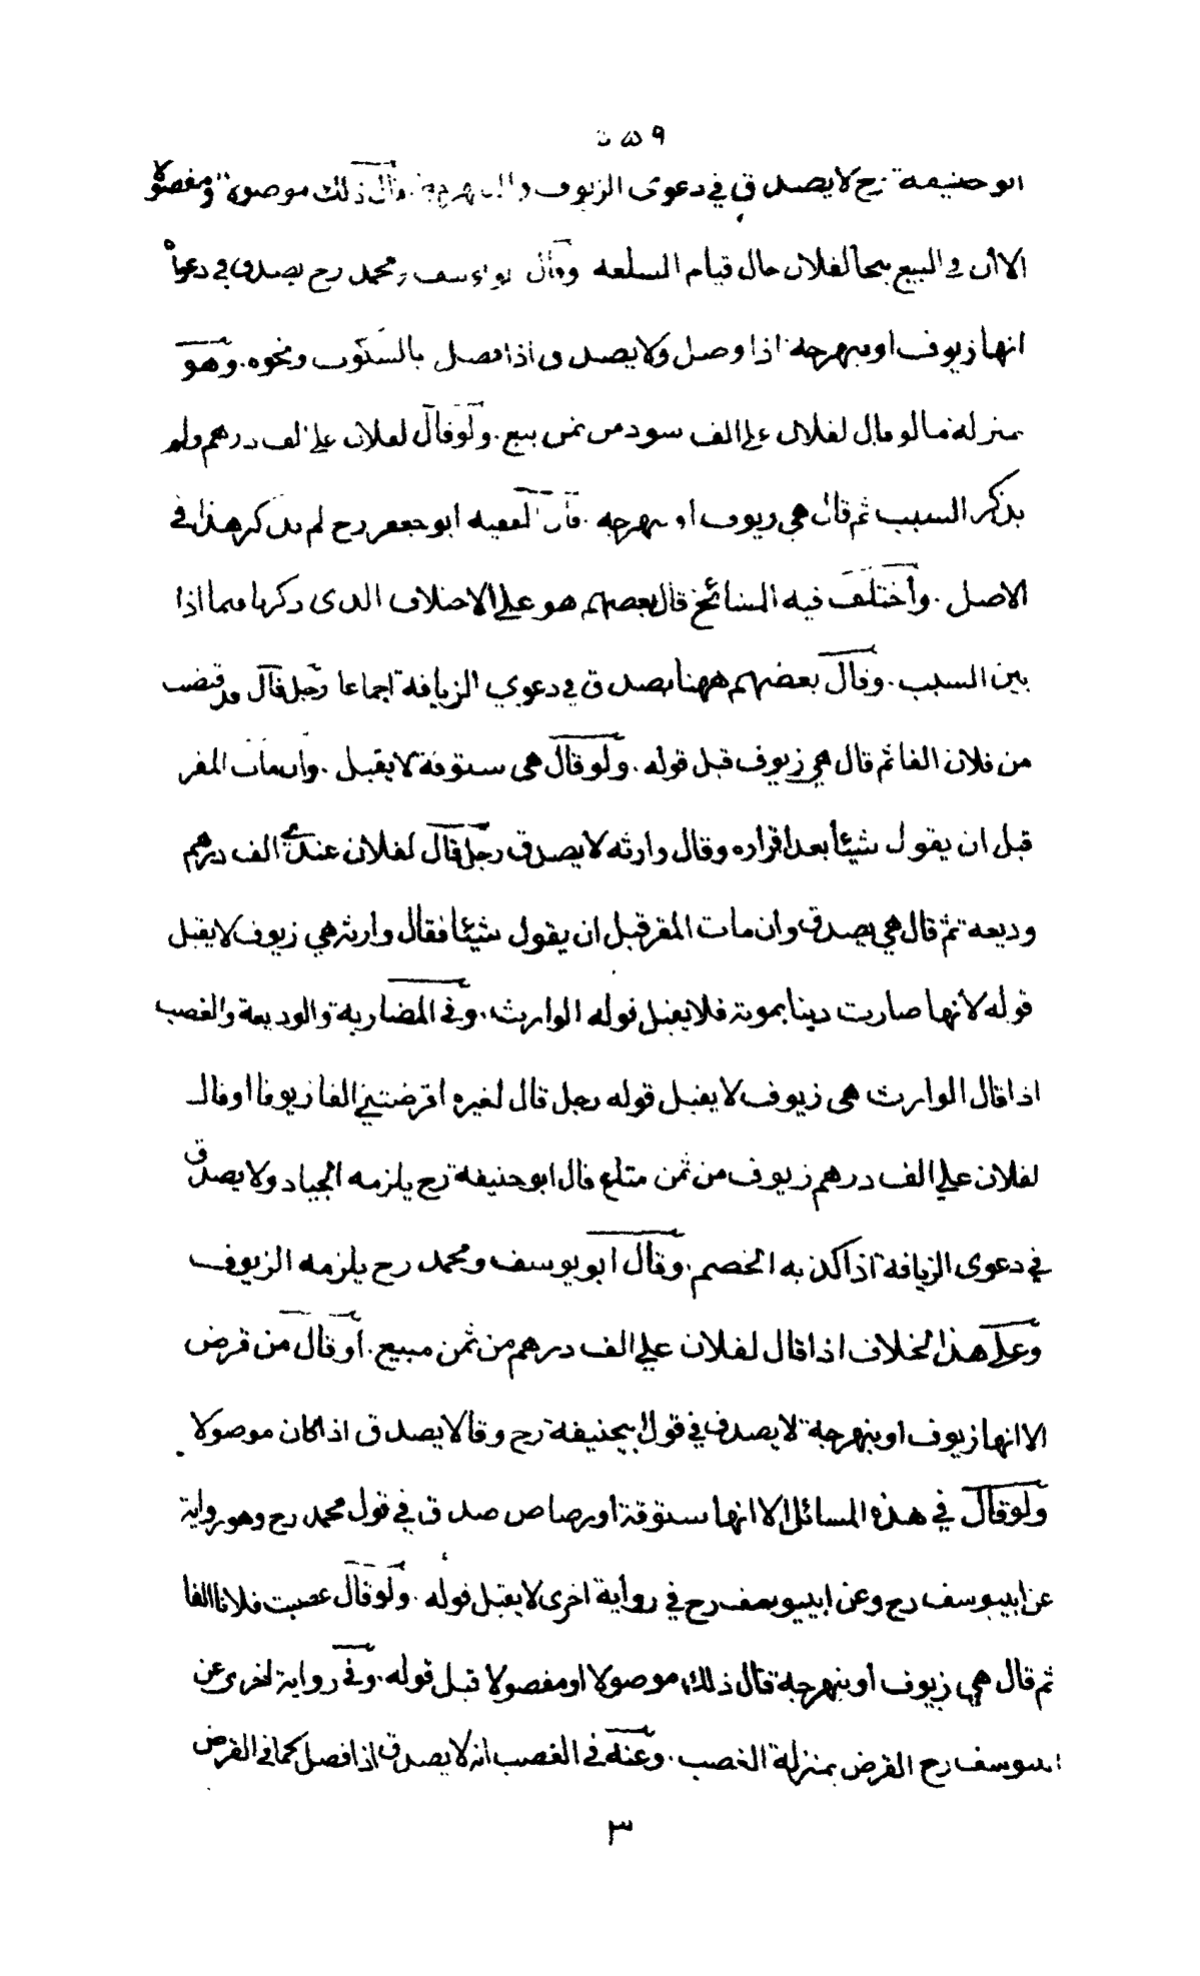 ابو حنيفة رح لا يصدق في دعوى الزيوف قال ذلك موصولا ومفصولا
الا ان في البيع حال قيام السلعة وقال ابو يوسف ومحمد رح يصدق في دعواه
انها زيوف او بنهرجة اذا وصل ولا يصدق اذا فصل بالستوق ونحوه. وهو
بمنزلة ما لو قال لفلان علي الف سود من ثمن بيع. ولو قال لفلان علي الف درهم ولم
يذكر السبب ثم قال هي زيوف او بنهرجة. قال الفقيه ابو جعفر رح لم يذكر هذا في
الاصل. واختلف فيه المشائخ قال بعضهم هو علي الاختلاف الذى ذكرنا فيما اذا
بين السبب. وقال بعضهم ههنا يصدق في دعوي الزيافة اجماعا رجل قال قد قبضت
من فلان الفا ثم قال هي زيوف قبل قوله. ولو قال هي ستوقة لا يقبل. وان مات المقر
قبل ان يقول شيئا بعد اقراره وقال وارثه لا يصدق رجل قال لفلان عندي الف درهم
وديعة ثم قال هي يصدق وان مات المقر قبل ان يقول شيئا فقال وارثه هي زيوف لا يقبل
قوله لانها صارت دينا بموته فلا يقبل قوله الوارث. وفي المضاربة والوديعة والغصب
اذا قال الوارث هي زيوف لا يقبل قوله رجل قال لغيره اقرضتني الفا زيوفا او قال
لفلان علي الف درهم زيوف من ثمن متاع قال ابو حنيفة رح يلزمه الجياد ولا يصدق
في دعوى الزيافة اذا كذبه الخصم. وقال ابو يوسف ومحمد رح يلزمه الزيوف
وعلي هذا الخلاف اذا قال لفلان علي الف درهم من ثمن مبيع. او قال من قرض
الا انها زيوف او بنهرجة لا يصدق في قول ابيحنيفة رح وقالا يصدق اذا كان موصولا.
ولو قال في هذه المسائل الا انها ستوقة او رصاص صدق في قول محمد رح وهو رواية
عن ابيوسف رح وعن ابييوسف رح في رواية اخرى لا يقبل قوله. ولو قال غصبت فلانا الفا
ثم قال هي زيوف او بنهرجة قال ذلك موصولا او مفصولا قبل قوله. وفي رواية اخرى عن
ابيوسف رح القرض بمنزلة الغصب. وعنه في الغصب انه لا يصدق اذا فصل كما في القرض
٣